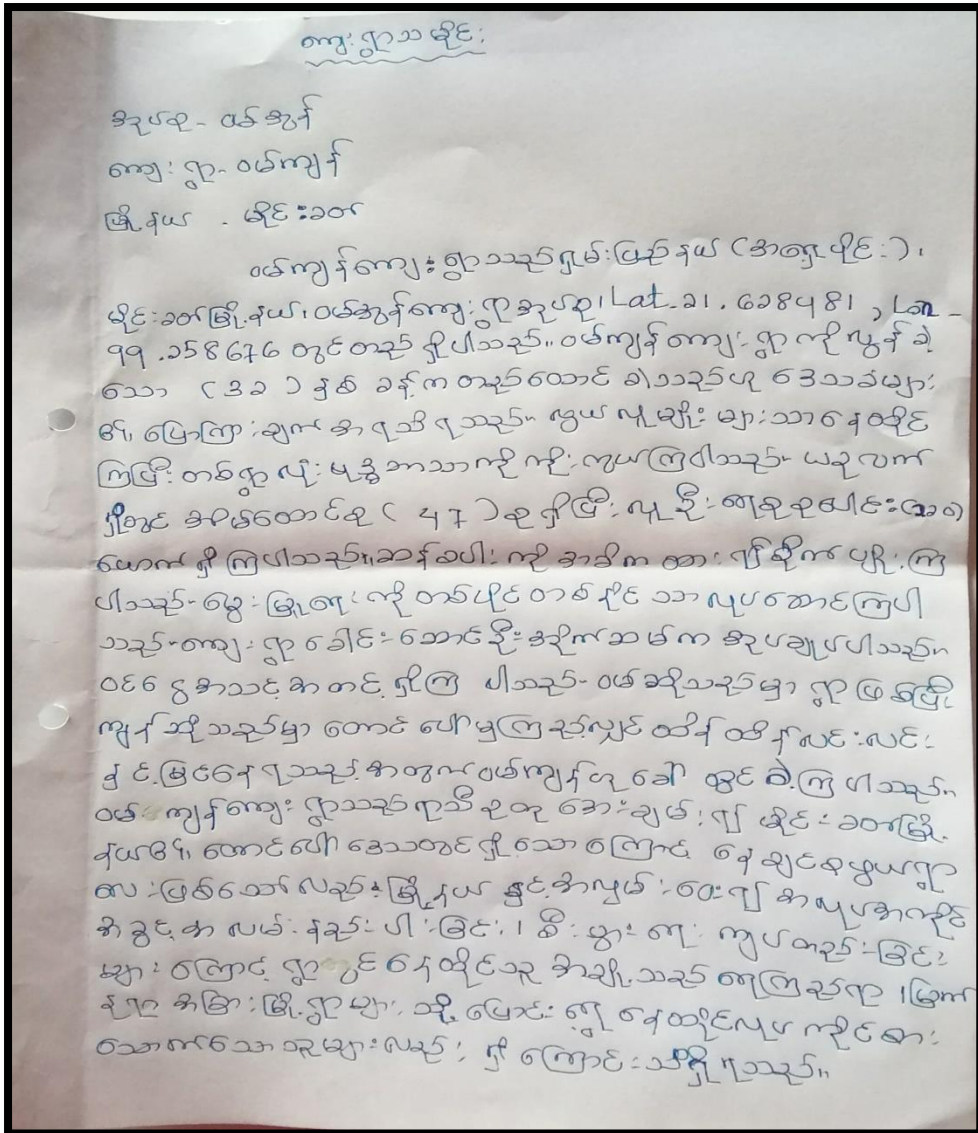 ကျေးရွာသမိုင်း
အုပ်စု - ဝမ်အွန်
ကျေးရွာ - ဝမ်ကျန်
မြို့နယ် - မိုင်းခတ်
ဝမ်ကျန်ကျေးရွာသည်ရှမ်းပြည်နယ် (အရှေ့ပိုင်း)၊
မိုင်းခတ်မြို့နယ်၊ ဝမ်အွန်ကျေးရွာအုပ်စု၊ Lat-21.628481, Lon-
99.258676 တွင်တည်ရှိပါသည်။ ဝမ်ကျန်ကျေးရွာကိုလွန်ခဲ့
သော (၃၁) နှစ်ခန့်ကတည်ထောင်ခဲ့သည်ဟု ဒေသခံများ
၏ ပြောကြားချက်အရသိရသည်။ လွယ်လူမျိုးများသာနေထိုင်
ကြပြီး တစ်ရွာလုံးဗုဒ္ဓဘာသာကိုကိုးကွယ်ကြပါသည်။ ယခုလက်
ရှိတွင် အိမ်ထောင်စု (47) စုရှိပြီး လူဦးရေစုစုပေါင်း
ယောက်ရှိကြပါသည်။ ဆန်စပါးကိုအဓိကထား၍စိုက်ပျိုးကြ
ပါသည်။ မွေးမြူရေးကိုတစ်ပိုင်တစ်နိုင်သာလုပ်ဆောင်ကြပါ
သည်။ ကျေးရွာခေါင်းဆောင်ဦးအိုက်ဆမ်ကအုပ်ချုပ်ပါသည်။
ဝင်ငွေအသင့်အတင့်ရှိကြပါသည်။ ဝမ်ဆိုသည်မှာ ရွာဖြစ်ပြီး
ကျန်ဆိုသည်မှာ တောင်ပေါ်မှကြည့်လျှင် ထိန်ထိန်လင်းလင်း
နှင့်မြင်နေရသည့်အတွက်ဝမ်ကျန်ဟု ခေါ်တွင်ခဲ့ကြပါသည်။
ဝမ်ကျန်ကျေးရွာသည်ရာသီဥတုအေးချမ်း၍ မိုင်းခတ်မြို့
နယ်၏ တောင်ပေါ်ဒေသတွင်ရှိသောကြောင့် နေချင်စဖွယ်ရွာ
လေးဖြစ်သော်လည်းမြို့နယ်နှင့်အလှမ်းဝေး၍ အလုပ်အကိုင်
အခွင့်အလမ်းနည်းပါးခြင်း၊ စီးပွားရေးကျပ်တည်းခြင်း
များကြောင့်ရွာတွင်နေထိုင်သူအချို့သည် ရေကြည်ရာ၊ မြက်
နုရာ အခြားမြို့ရွာများသို့ ပြောင်းရွှေ့နေထိုင်လုပ်ကိုင်စား
သောက်သောသူများလည်းရှိကြောင်းသိရှိရသည်။